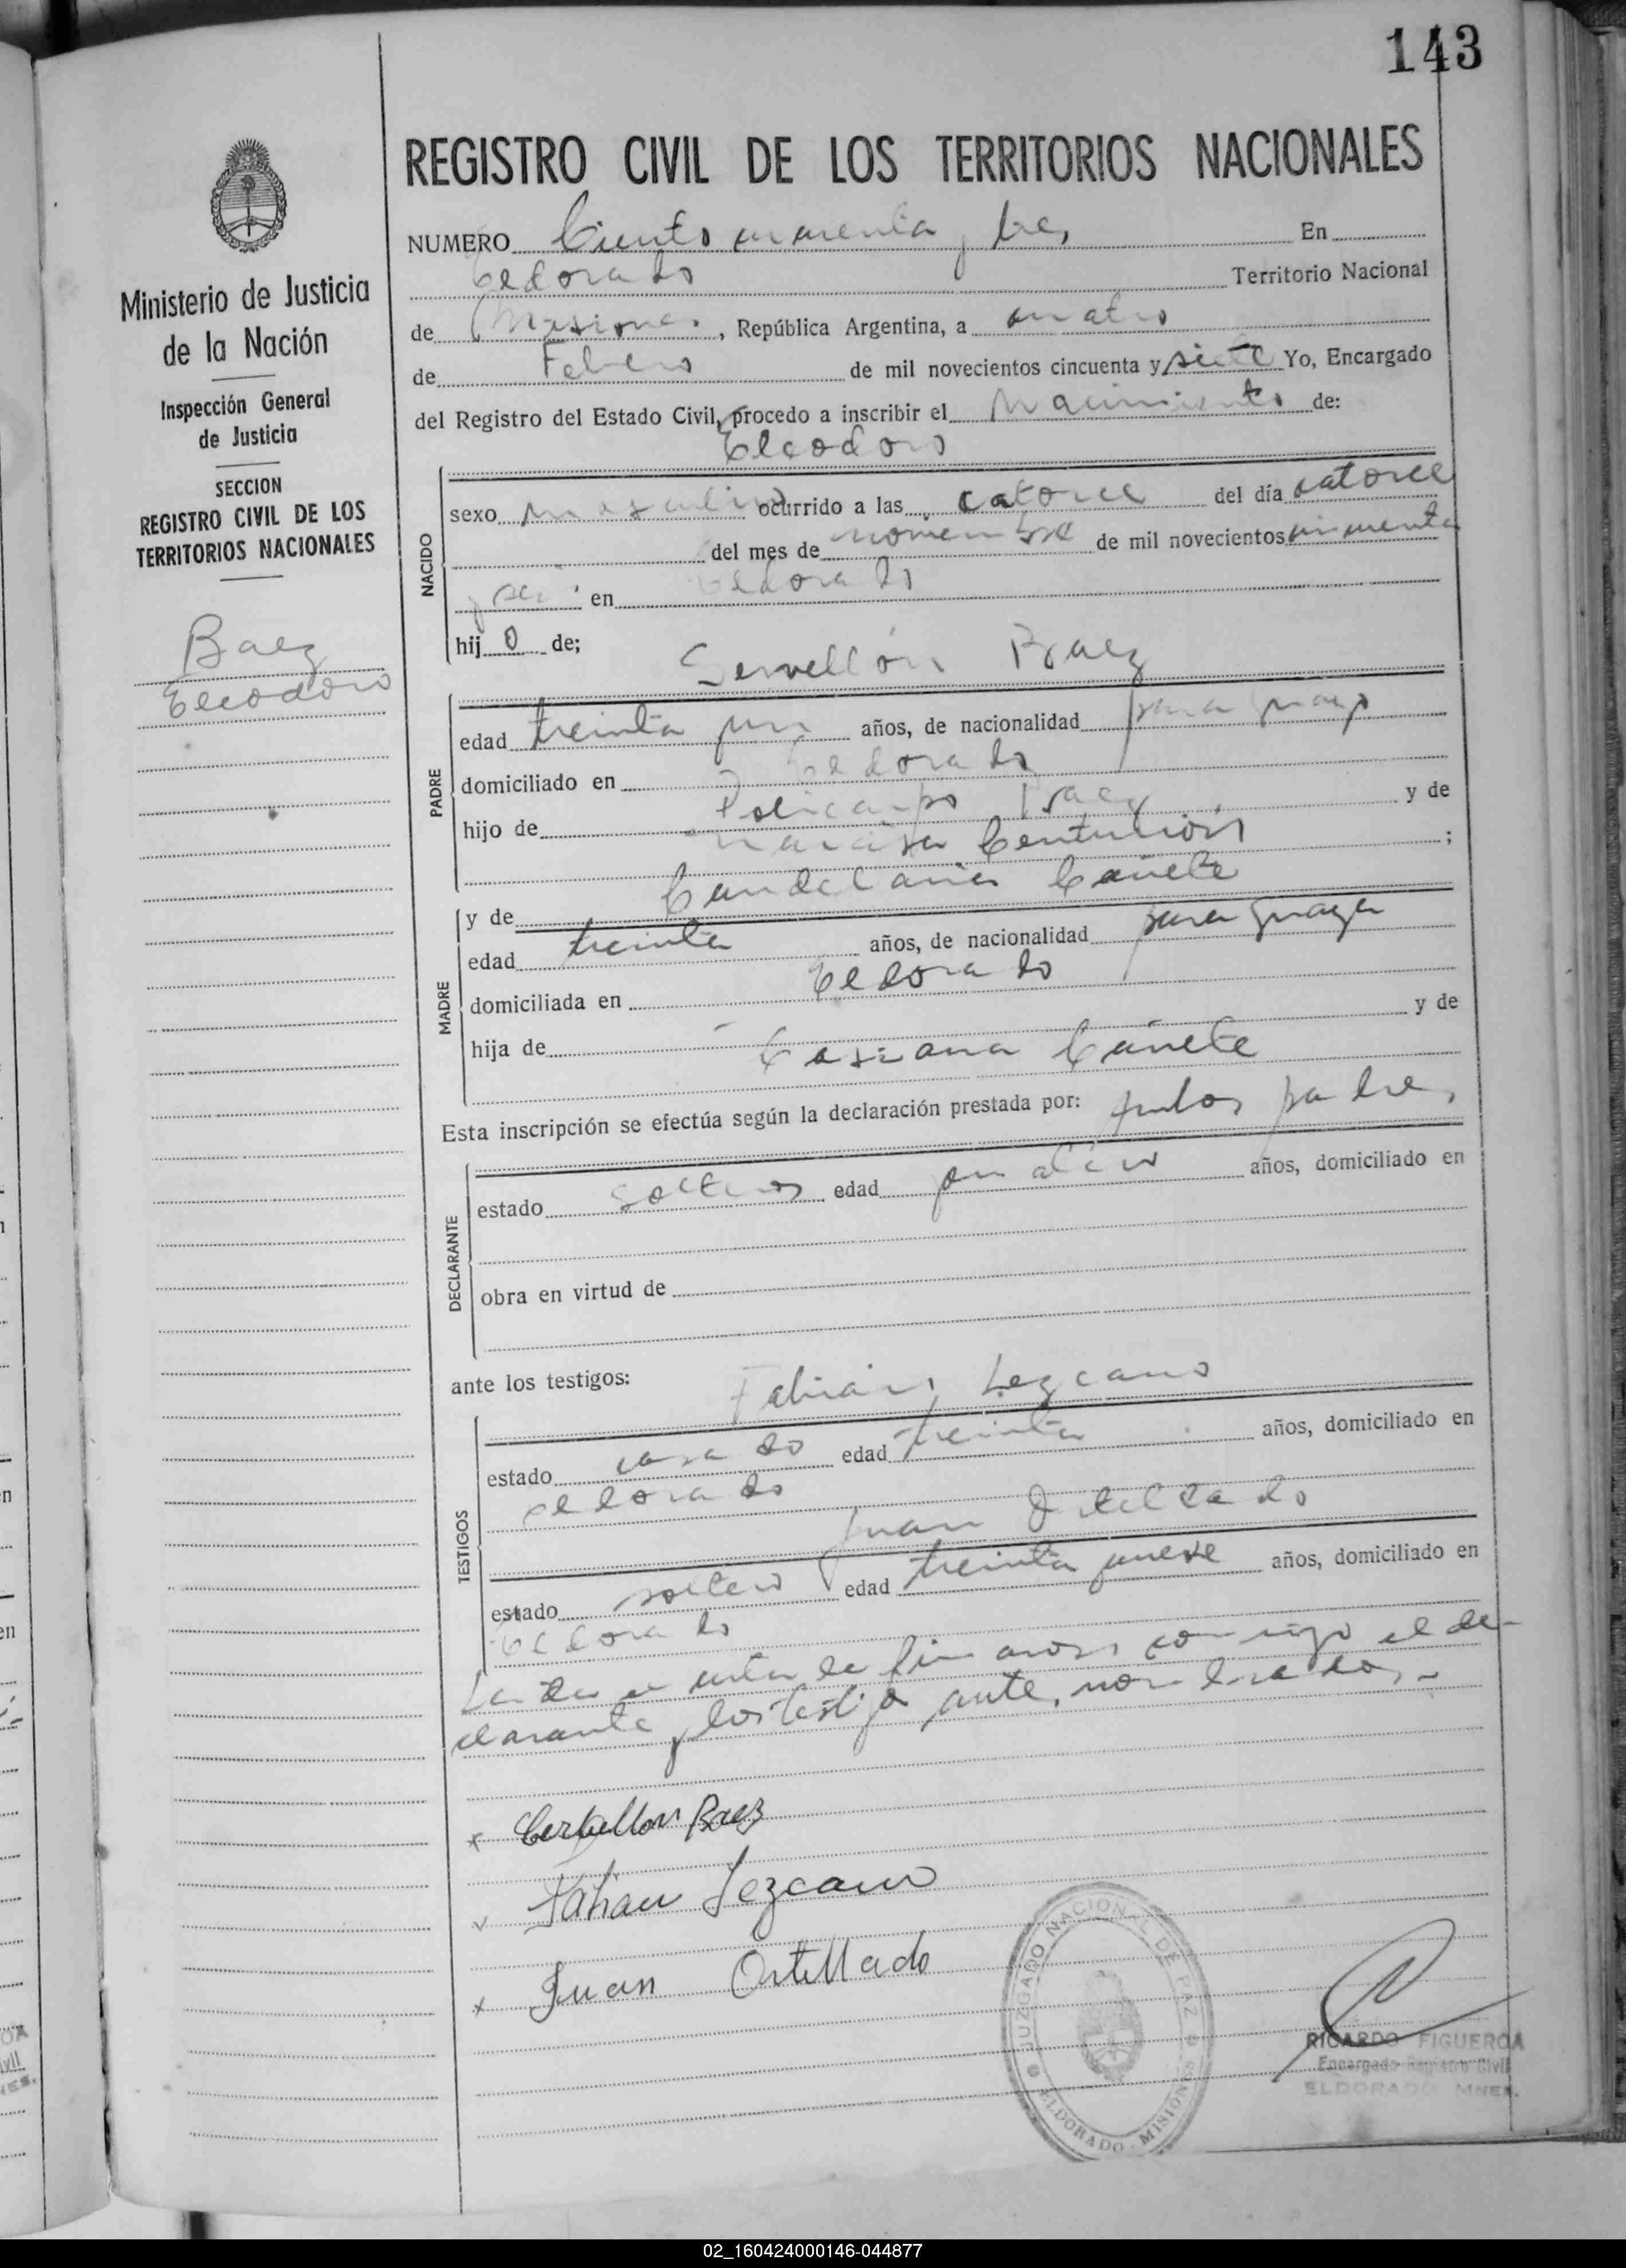 143
REGISTRO CIVIL DE LOS TERRITORIOS NACIONALES
NUMERO Ciento cuarenta y tres En
Eldorado Territorio Nacional
de Misiones, República Argentina, a cuatro
de Febrero de mil novecientos cincuenta y siete Yo, Encargado
del Registro del Estado Civil, procedo a inscribir el Nacimiento de:
Eleodoro
NACIDO
sexo masculino ocurrido a las catorce del día catorce
del mes de noviembre de mil novecientos cincuenta
y seis en Eldorado
hijo de;
Servellón Baez
PADRE
edad treinta y un años, de nacionalidad paraguayo
domiciliado en Eldorado
hijo de Policarpo Baez y de
Narcisa Centurión ;
y de Candelaria Cañete
MADRE
edad treinta años, de nacionalidad paraguaya
domiciliada en Eldorado
hija de - y de
Casiana Cañete
Esta inscripción se efectúa según la declaración prestada por: ambos padres
DECLARANTE
estado solteros edad años, domiciliado en
obra en virtud de
ante los testigos:
Fabián Lezcano
TESTIGOS
estado casado edad treinta años, domiciliado en
eldorado
Juan Ortellado
estado soltero edad treinta y nueve años, domiciliado en
Eldorado
Leída el acta la firmaron conmigo el de-
clarante y los testigos antes nombrados.-
x Cerbellon Baez
Fabian Lezcano
x Juan Ortellado
JUZGADO NACIONAL DE PAZ
ELDORADO - MISIONES
RICARDO FIGUEROA
Encargado Registro Civil
ELDORADO MNES.
Ministerio de Justicia
de la Nación
Inspección General
de Justicia
SECCION
REGISTRO CIVIL DE LOS
TERRITORIOS NACIONALES
Baez
Eleodoro
02_160424000146-044877